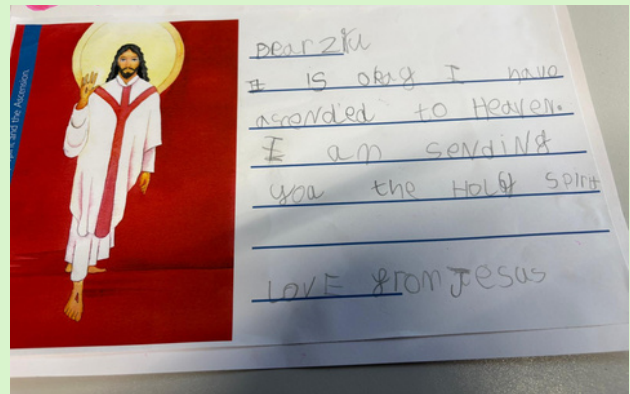 and the Ascension.
Dear Ziku
It is okay I have
ascended to Heaven.
I am sending
you the Holy Spirit
LOVE from Jesas